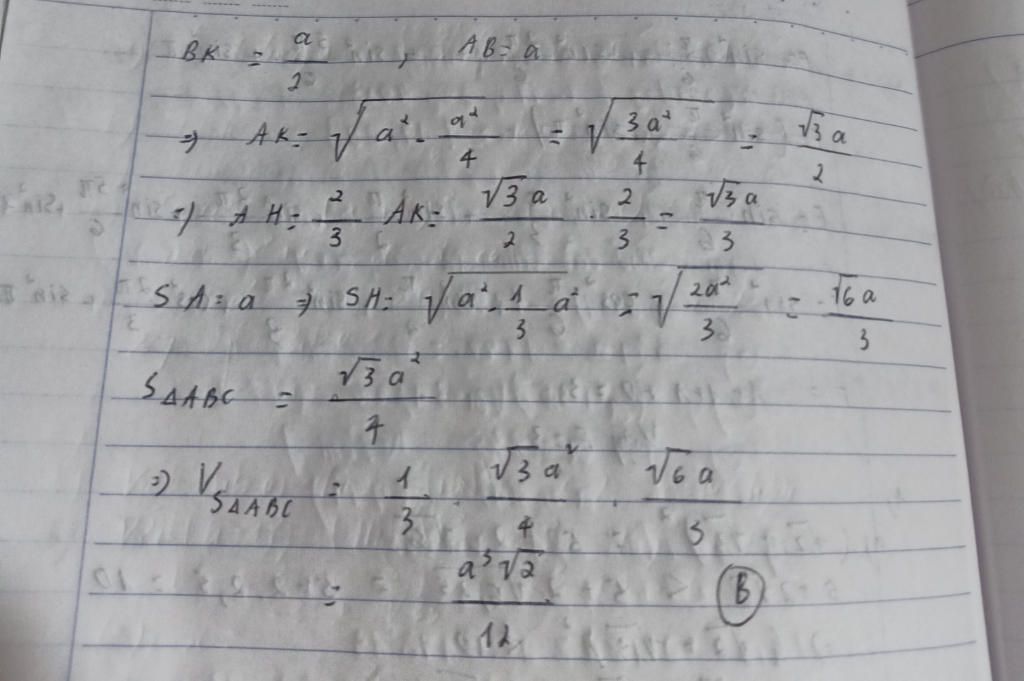 BK = a/2 , AB = a
=) AK = √(a² - a²/4) = √(3a²/4) = √3a/2
=) AH = 2/3 AK = √3a/2 · 2/3 = √3a/3
SA = a => SH = √(a² - 1/3 a²) = √(2a²/3) = √6a/3
S△ABC = √3a²/4
=) V S△ABC = 1/3 · √3a²/4 · √6a/3
= a³√2/12 B